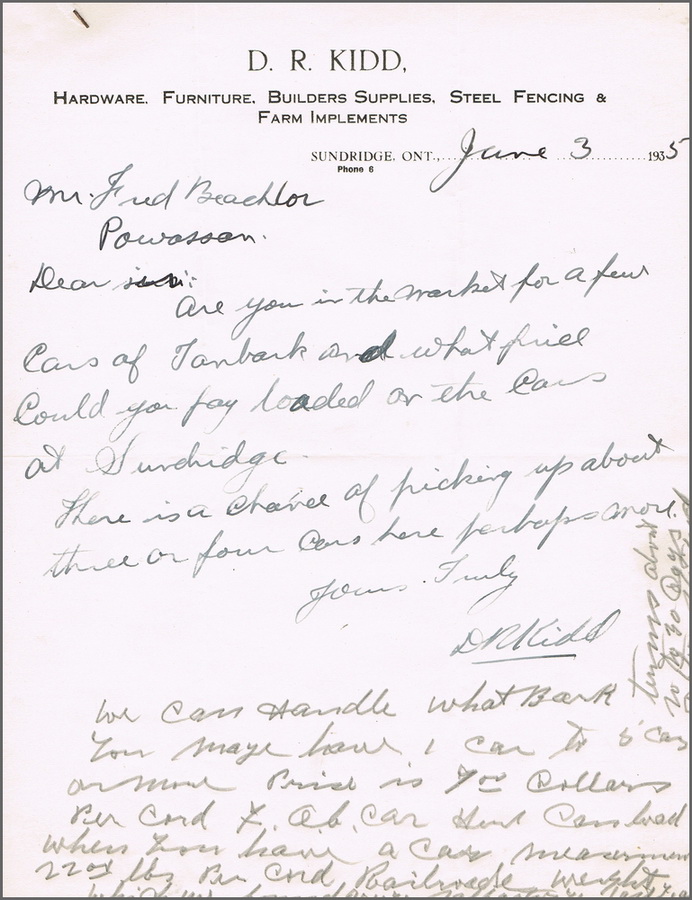 D. R. KIDD,
HARDWARE. FURNITURE, BUILDERS SUPPLIES, STEEL FENCING &
FARM IMPLEMENTS
SUNDRIDGE, ONT., June 3 1935
Phone 6
Mr. Fred Beachlor
Powassan.
Dear
Are you in the market for a few
Cars of Tanbark and what price
Could you pay loaded on the Cars
at Sundridge
There is a chance of picking up about
three or four Cars here perhaps more
Yours Truly
DRKidd
We can Handle what Bark
You maye have 1 car to 5 cars
or more Price is 7 00 Dollars
Per Cord F. O. b. Car
when you have a Car
2200 lbs Per Cord Railrode weight
which we
terms about
20 to 30 days